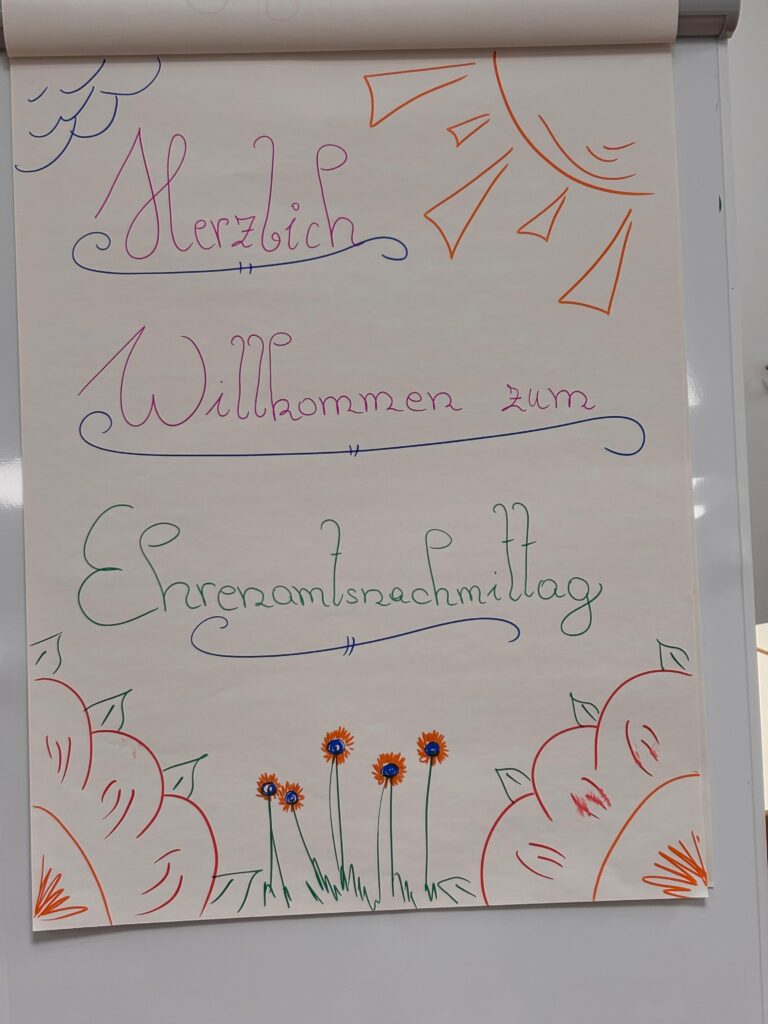 Herzlich
Willkommen zum
Ehrenamtsnachmittag